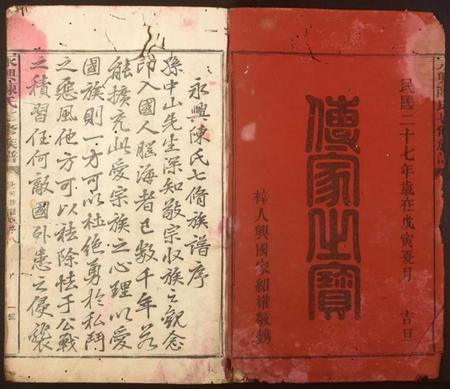 民國二十七年歲在戊寅夏月 吉日
傳家之寶
梓人興國家紹權敬鐫
永興陳氏七脩族譜序
孫中山先生深知敬宗收族之觀念
印入國人腦海者已數千年若
能擴充此愛宗族之心理以愛
國族則一方可以杜絕勇於私鬥
之惡風他方可以祛除怯于公戰
之積習任何敵國外患之侵襲